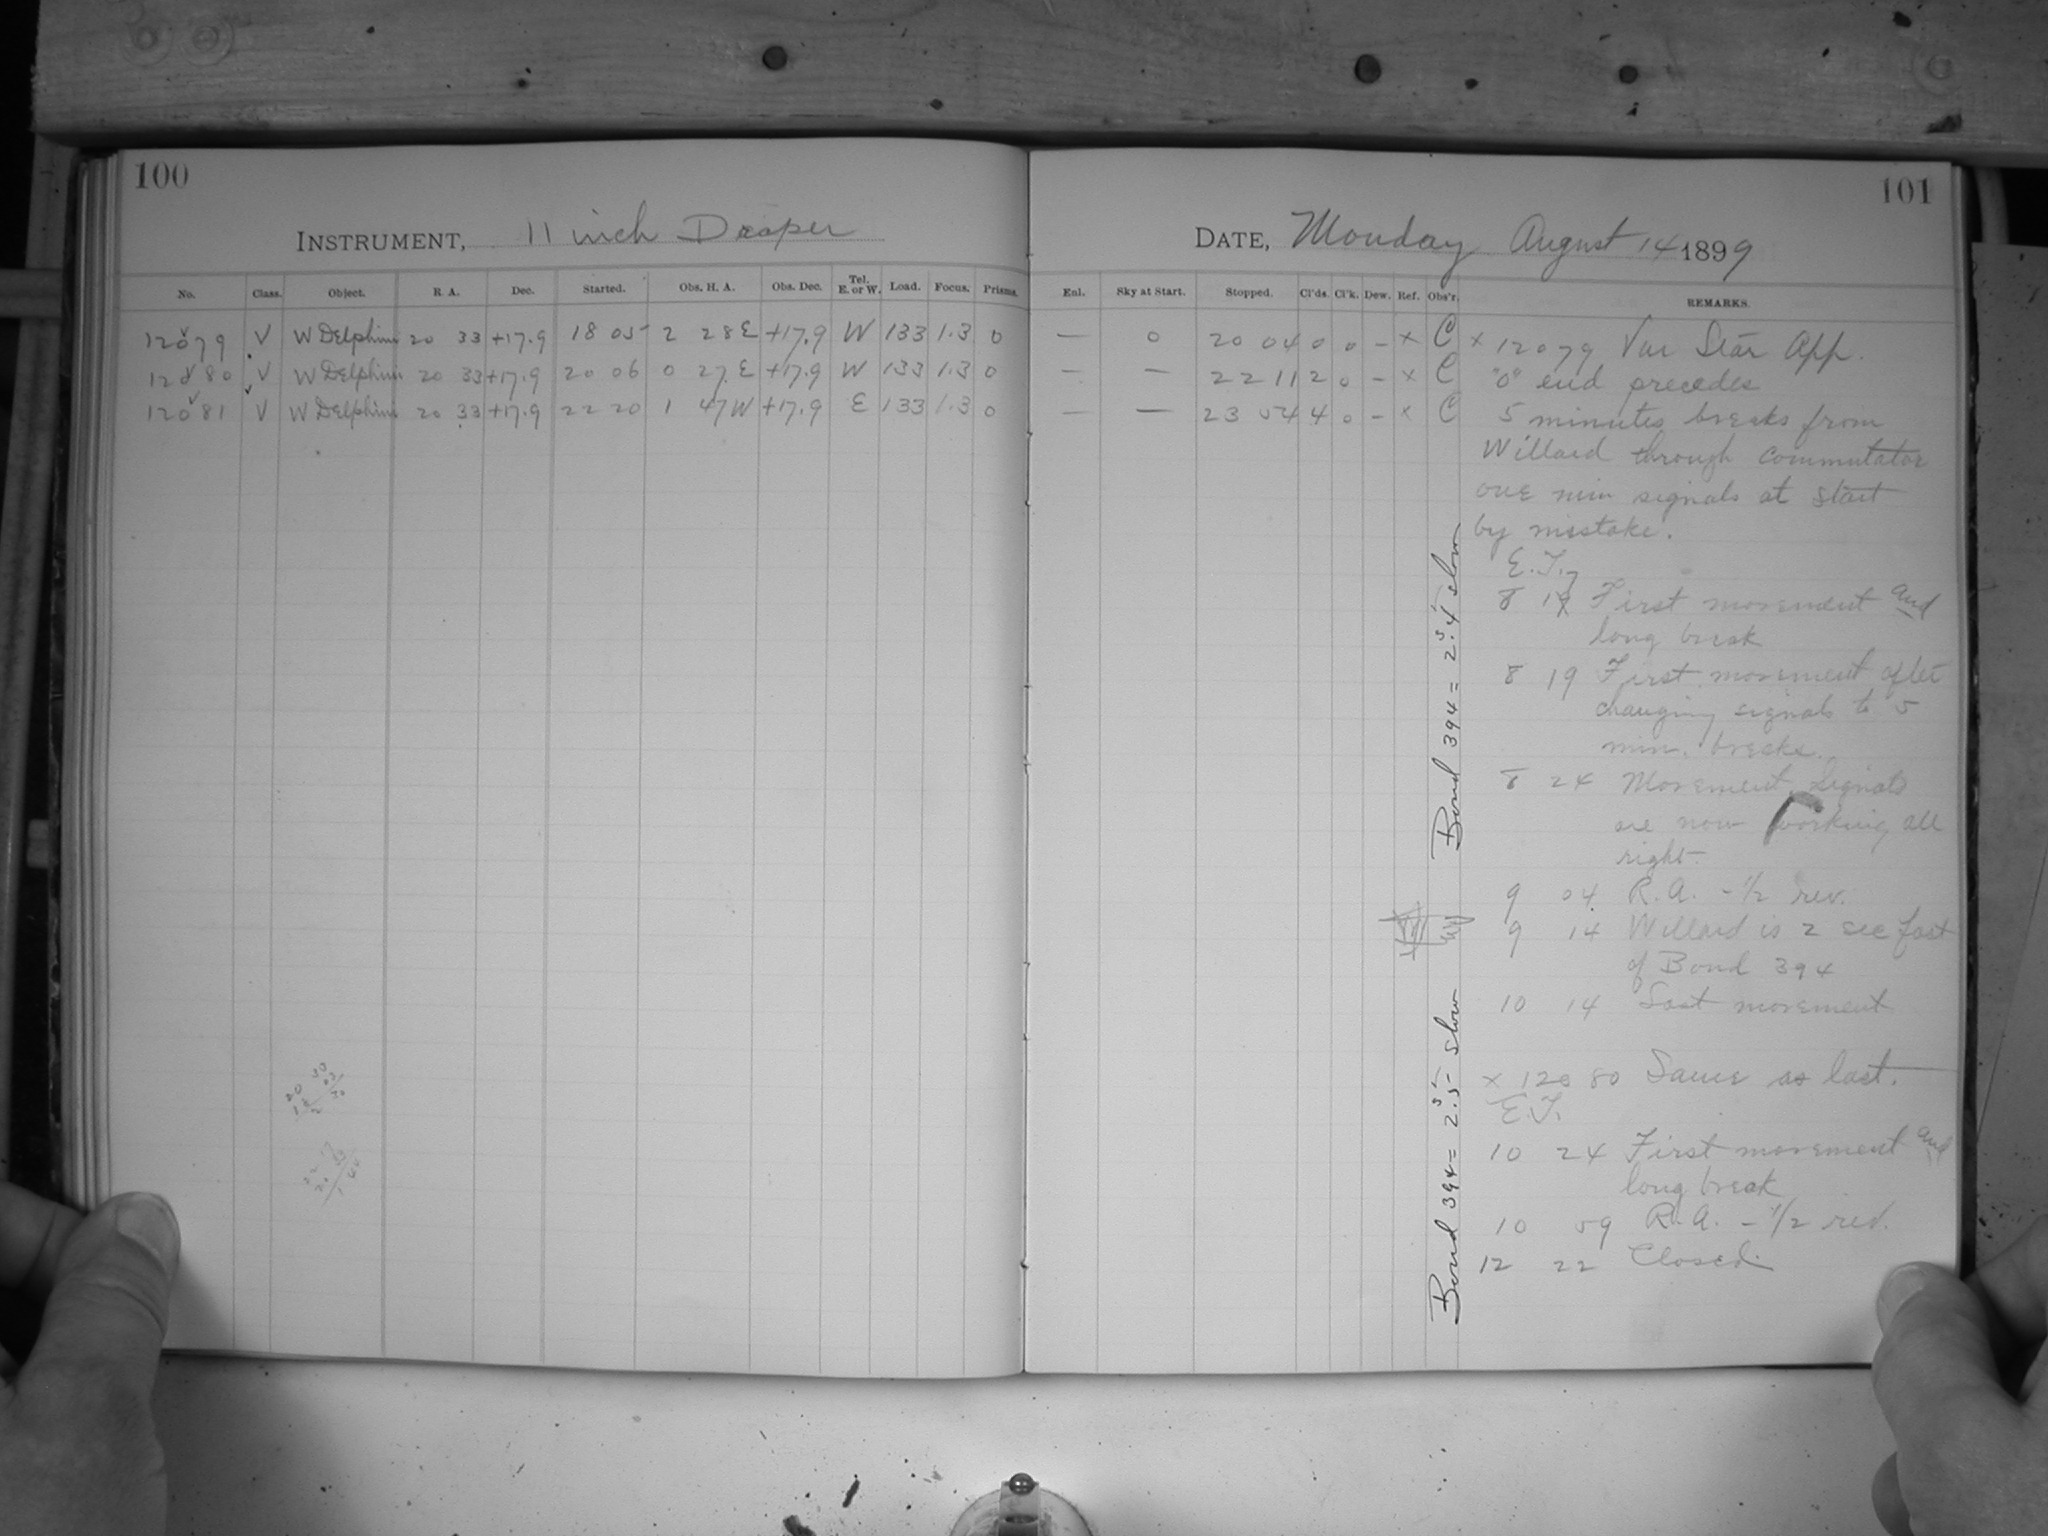 100
INSTRUMENT, 11 inch Draper
No. Class. Object. R. A. Dec. Started. Obs. H. A. Obs. Dec. Tel. E. or W. Load. Focus. Prisms.
12079 V W Delphini 20 33 +17.9 18 05 2 28 E +17.9 W 133 1.3 0
12080 V W Delphini 20 33 +17.9 20 06 0 27 E +17.9 W 133 1.3 0
12081 V W Delphini 20 33 +17.9 22 20 1 47 W +17.9 E 133 1.3 0
101
DATE, Monday August 14 1899
Enl. Sky at Start. Stopped. Cl'ds. Cl'k. Dew. Ref. Obs'r. REMARKS.
— 0 20 04 0 0 – x C
— — 22 11 2 0 – x C
— — 23 54 4 0 – x C
x 12079 Var Star App.
"0" end precedes
5 minutes breaks from
Willard through commutator
one min signals at start
by mistake.
E.T.
8 17 First movement and
long break
8 19 First movement after
changing signals to 5
min. breaks.
8 24 Movement signals
are now working all
right.
9 04 R.A. – 1/2 rev.
9 14 Willard is 2 sec fast
of Bond 394
10 14 Last movement
x 12080 Same as last.
E.T.
10 24 First movement and
long break
10 59 R.A. – 1/2 rev.
12 22 Closed
Bond 394 = 2s.4 slow
Bond 394 = 2s.5 slow